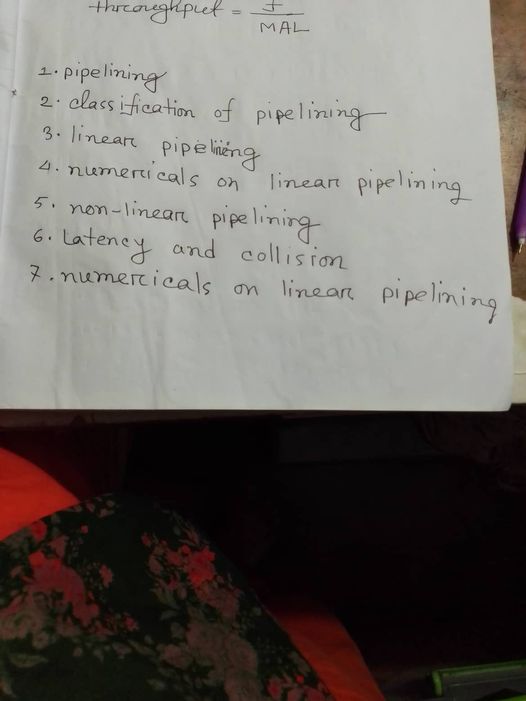 throughput = f / MAL
1. pipelining
2. classification of pipelining
3. linear pipelining
4. numericals on linear pipelining
5. non-linear pipelining
6. Latency and collision
7. numericals on linear pipelining